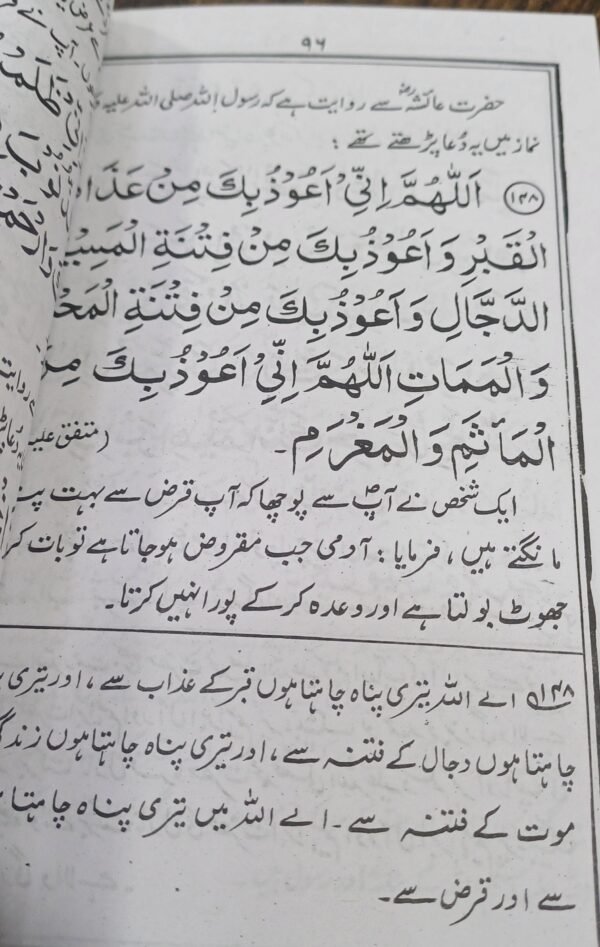 ۹۶
حضرت عائشہؓ سے روایت ہے کہ رسول اللہ صلی اللہ علیہ و
نماز میں یہ دُعا پڑھتے تھے :
(۱۴۸) اَللّٰهُمَّ اِنِّيْ اَعُوْذُ بِكَ مِنْ عَذَا
الْقَبْرِ وَاَعُوْذُ بِكَ مِنْ فِتْنَةِ الْمَسِيْ
الدَّجَّالِ وَاَعُوْذُ بِكَ مِنْ فِتْنَةِ الْمَحْ
وَالْمَمَاتِ اَللّٰهُمَّ اِنِّيْ اَعُوْذُ بِكَ مِنَ
الْمَاْثَمِ وَالْمَغْرَمِ ۔ (متفق علیہ
ایک شخص نے آپؐ سے پوچھا کہ آپ قرض سے بہت
مانگتے ہیں ، فرمایا : آدمی جب مقروض ہوجاتا ہے تو بات کر
جھوٹ بولتا ہے اور وعدہ کرکے پورا نہیں کرتا۔
۱۴۸ اے اللہ تیری پناہ چاہتا ہوں قبر کے عذاب سے ، اور تیری
چاہتا ہوں دجال کے فتنہ سے ، اور تیری پناہ چاہتا ہوں زندگ
موت کے فتنہ سے ۔ اے اللہ میں تیری پناہ چاہتا
سے اور قرض سے ۔